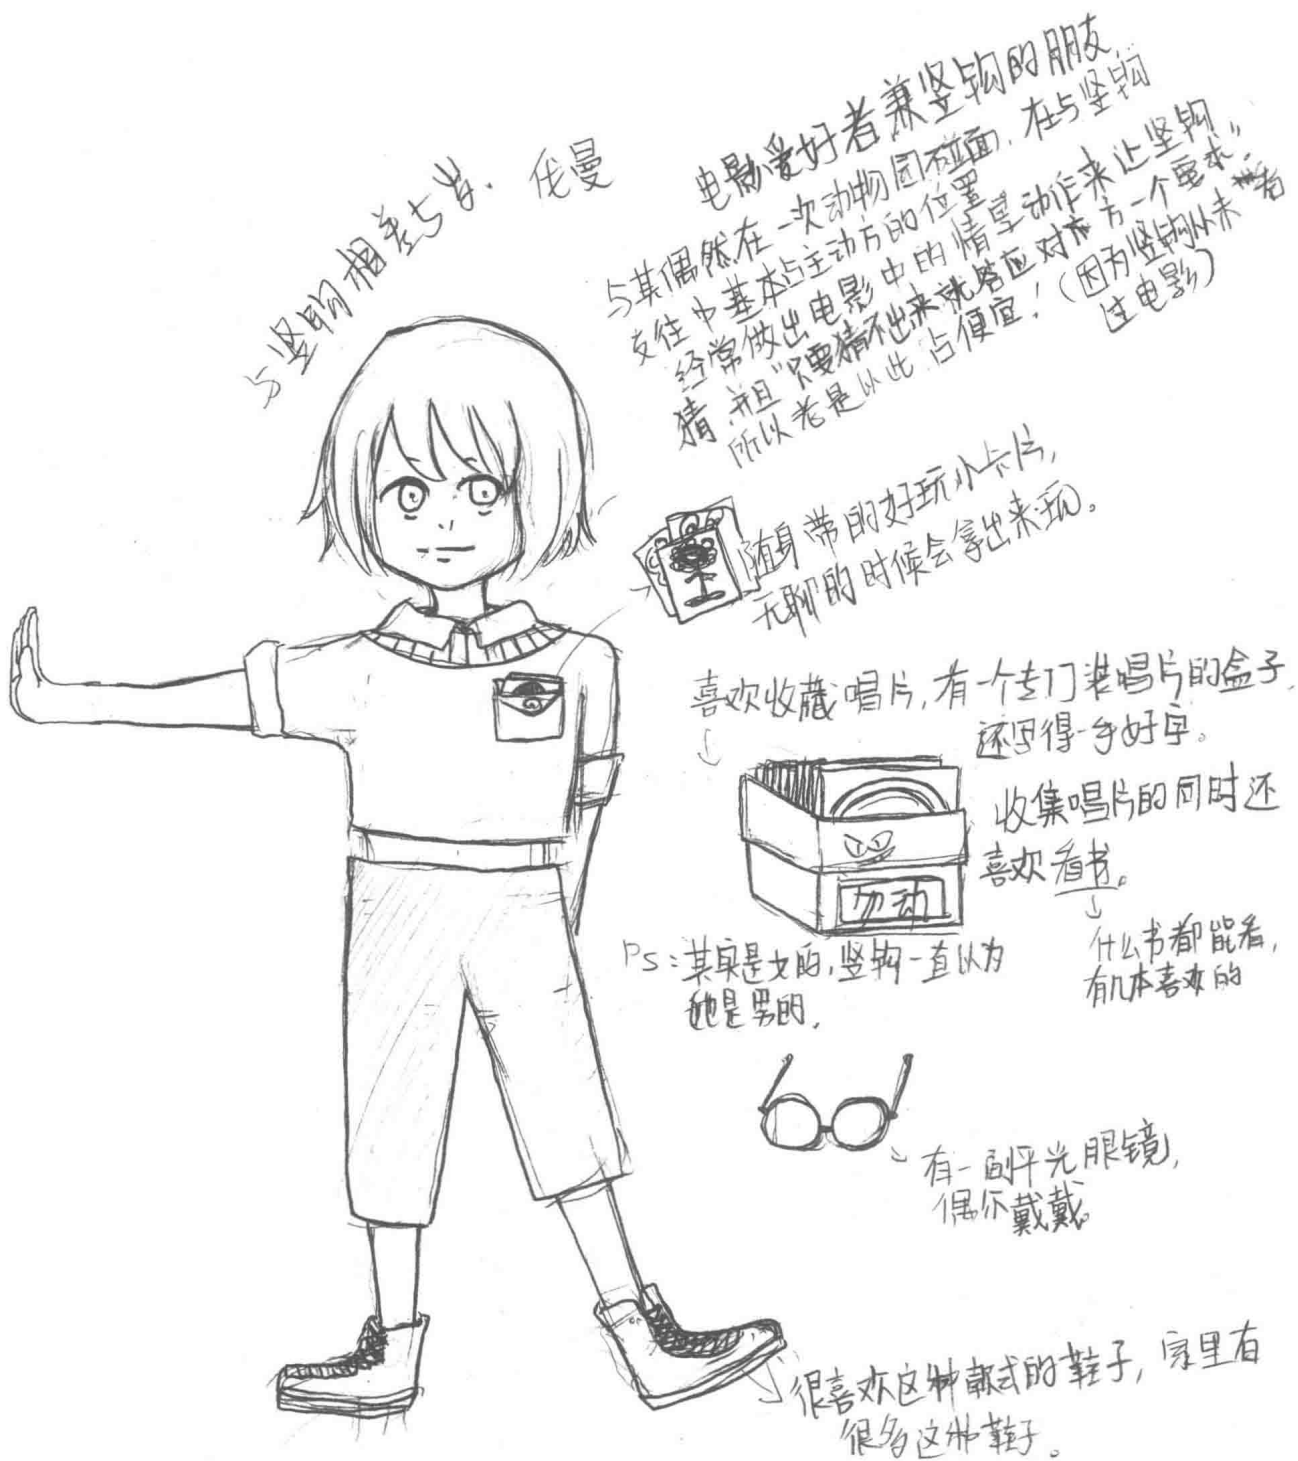 与竖钩相差5岁. 伐曼
电影爱好者兼竖钩的朋友
与其偶然在一次动物园碰面,在与竖钩
交往中基本占主动方的位置
经常做出电影中的情景动作来让竖钩
猜,并且"只要猜不出来就答应对方一个要求"。
所以老是以此占便宜!(因为竖钩从未看
过电影)
随身带的好玩小卡片,
无聊的时候会拿出来玩。
喜欢收藏唱片,有一个专门装唱片的盒子,
还写得一手好字。
收集唱片的同时还
喜欢看书。
勿动
什么书都能看,
有几本喜欢的
PS:其实是女的,竖钩一直以为
她是男的,
有一副平光眼镜,
偶尔戴戴。
很喜欢这种款式的鞋子,家里有
很多这种鞋子。